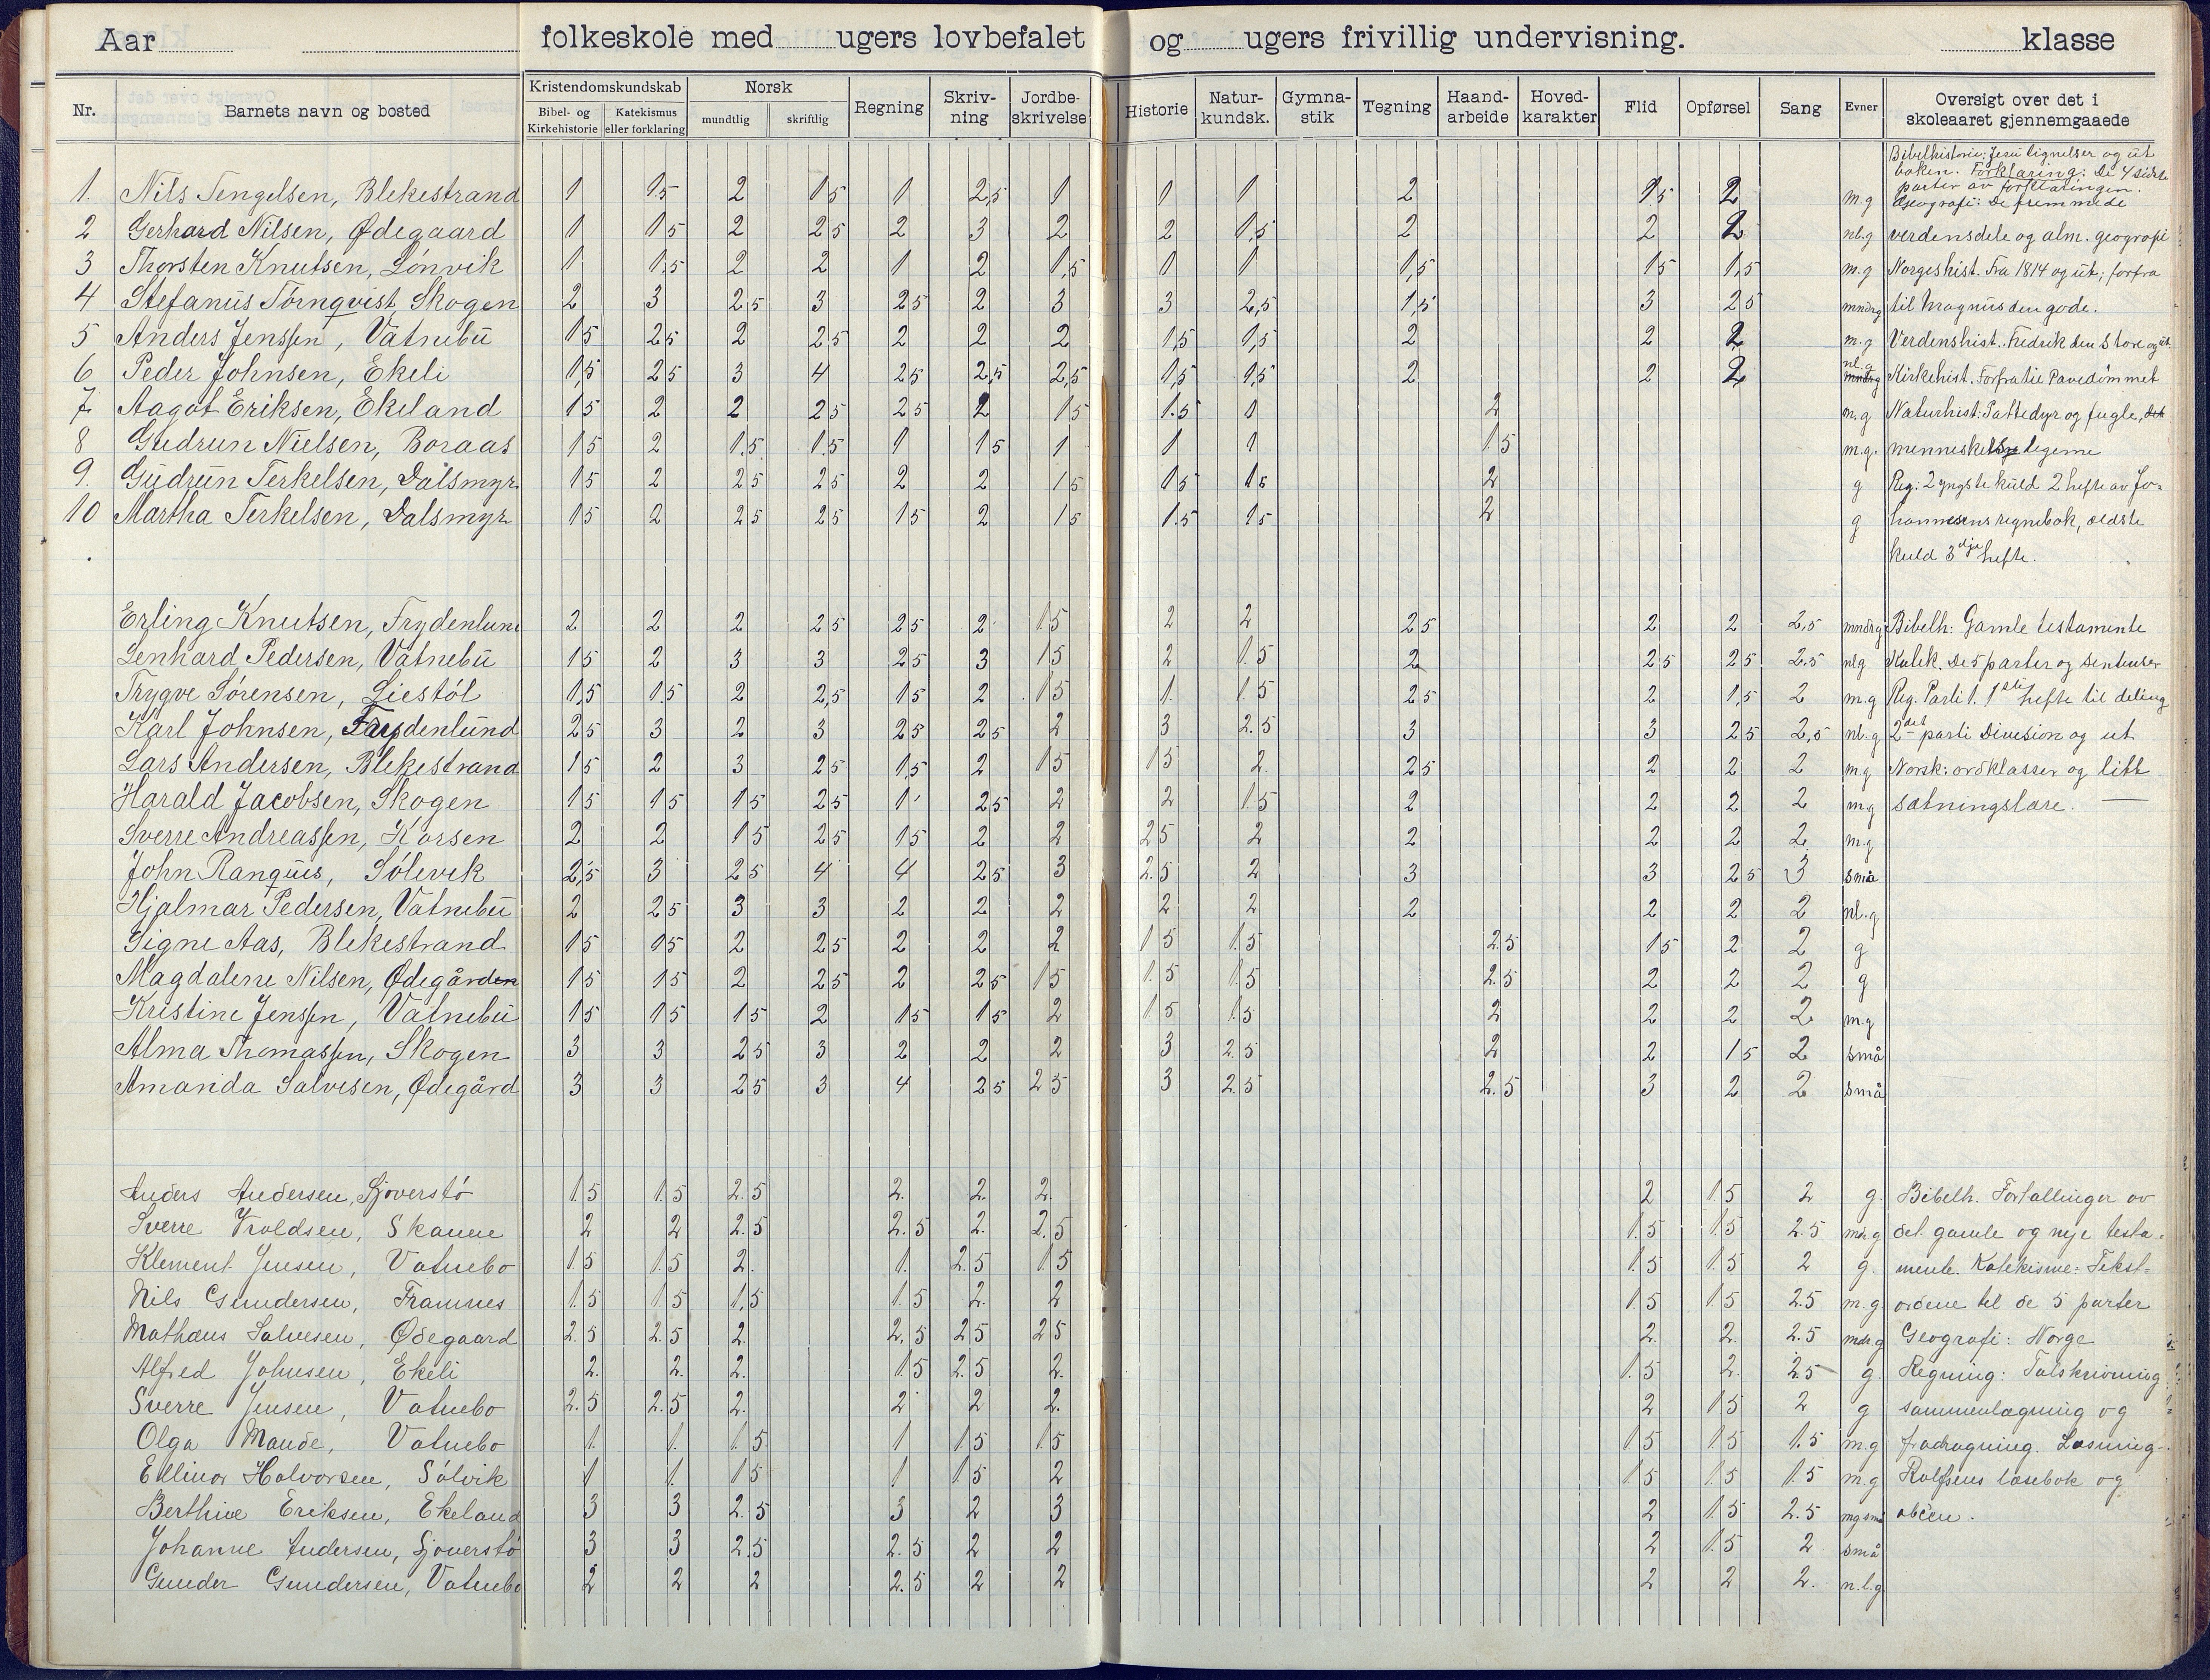 Aar folkeskole med ugers lovbefalet og ugers frivillig undervisning. klasse
Nr. Barnets navn og bosted Kristendomskundskab Bibel- og Kirkehistorie Katekismus eller forklaring Norsk mundtlig skriftlig Regning Skrivning Jordbeskrivelse Historie Naturkundsk. Gymnastik Tegning Haandarbeide Hovedkarakter Flid Opførsel Sang Evner Oversigt over det i skoleaaret gjennemgaaede
Bibelhistorie: Jesu lignelser og ut
boken. Forklaring: De 4 sidste
parter av forklaringen.
1. Nils Tengelsen, Blekestrand 1 1.5 2 1.5 1 2,5 1 1 1 2 1.5 2 m.g Geografi: De fremmede
2 Gerhard Nilsen, Ødegaard 1 1.5 2 2.5 2 3 2 2 1,5 2 2 2 nl.g verdensdele og alm. geografi
3 Thorsten Knutsen, Lónvik 1 1,5 2 2 1 2 1,5 1 1 1,5 1.5 1,5 m.g Norgeshist. Fra 1814 og ut; forfra
4 Stefanus Törnqvist, Skogen 2 3 2.5 3 2.5 2 3 3 2,5 1,5 3 2.5 mndrg til Magnus den gode.
5 Anders Jenssen, Vatnebu 1.5 2.5 2 2.5 2 2 2 1,5 1,5 2 2 2 m.g Verdenshist. Fredrik den Store og ut.
6 Peder Johnsen, Ekeli 1,5 2.5 3 4 2.5 2,5 2,5 1,5 1,5 2 2 2 nl.g Kirkehist. Forfra til Pavedömmet
7. Aagot Eriksen, Ekeland 1.5 2 2 2.5 2.5 2 1.5 1.5 1 2 m.g Naturhist: Pattedyr og fugle, det
8 Gudrun Nielsen, Boraas 1.5 2 1.5 1.5 1 1.5 1 1 1 1.5 m.g. menneskel legeme
9. Gudrun Terkelsen, Dalsmyr 1.5 2 2.5 2.5 2 2 1.5 1.5 1.5 2 g Reg: 2 yngste kuld 2 hefte av Jo-
10 Martha Terkelsen, Dalsmyr 1.5 2 2.5 2.5 1.5 2 1.5 1.5 1.5 2 g hannesens regnebok, ældste
kuld 3dje hefte.
Erling Knutsen, Frydenlund 2 2 2 2.5 2.5 2 1.5 2 2 2.5 2 2 2,5 mndrg Bibelh: Gamle testamente
Lenhard Pedersen, Vatnebu 1.5 2 3 3 2.5 3 1.5 2 1.5 2 2.5 2.5 2.5 nlg Katek. De 5 parter og sentenser
Trygve Sørensen, Liestól 1,5 1.5 2 2,5 1.5 2 1.5 1. 1.5 2.5 2 1,5 2 m.g Reg. Parti 1. 1ste hefte til deling
Karl Johnsen, Frydenlund 2.5 3 2 3 2.5 2.5 2 3 2.5 3 3 2.5 2,5 nl.g 2det parti Division og ut
Lars Andersen, Blekestrand 1.5 2 3 2.5 1,5 2 1.5 1.5 2. 2.5 2 2 2 m.g Norsk: ordklasser og litt
Harald Jacobsen, Skogen 1.5 1.5 1.5 2.5 1 2.5 2 2 1.5 2 2 2 2 m.g sætningslære.
Sverre Andreassen, Korsen 2 2 1.5 2.5 1.5 2 2 2.5 2 2 2 2 2 m.g
John Ranquis, Sólevik 2,5 3 2.5 4 4 2.5 3 2.5 2 3 3 2.5 3 små
Hjalmar Pedersen, Vatnebu 2 2.5 3 3 2 2 2 2 2 2 2 2 2 nl.g
Signe Aas, Blekestrand 1.5 1.5 2 2.5 2 2 2 1.5 1.5 2.5 1.5 2 2 g
Magdalene Nilsen, Ødegården 1.5 1.5 2 2.5 2 2.5 1.5 1.5 1.5 2.5 2 2 2 g
Kristine Jenssen, Vatnebu 1.5 1.5 1.5 2 1.5 1.5 2 1.5 1.5 2 2 2 2 m.g
Alma Thomassen, Skogen 3 3 2.5 3 2 2 2 3 2.5 2 2 1.5 2 små
Amanda Salvesen, Ødegård 3 3 2.5 3 4 2.5 2.5 3 2.5 2.5 3 2 2 små
Anders Andersen, Sjoverstó 1.5 1.5 2.5 2. 2. 2. 2 1.5 2 g. Bibelh. Fortællinger av
Sverre Troldsen, Skauen 2 2 2.5 2.5 2. 2.5 1.5 1.5 2.5 mdrg det gamle og nye testa-
Klement Jensen, Vatnebo 1.5 1.5 2. 1. 2.5 1.5 1.5 1.5 2 g. mente. Katekisme: Tekst-
Nils Gundersen, Framnes 1.5 1.5 1,5 1.5 2. 2 1.5 1.5 2.5 m.g. ordene til de 5 parter
Mathæus Salvesen, Ødegaard 2.5 2.5 2. 2.5 2.5 2.5 2. 2. 2.5 mdr.g Geografi: Norge
Alfred Johnsen, Ekeli 2. 2. 2. 1.5 2.5 2. 1.5 2. 2.5 g. Regning: Talskrivning
Sverre Jensen, Vatnebo 2.5 2.5 2. 2 2 2. 2 1.5 2 g sammenlægning og
Olga Mande, Vatnebo 1. 1. 1.5 1 1.5 1.5 1.5 1.5 1.5 m.g fradragning. Læsning-
Ellinor Halvorsen, Sólvik 1 1. 1.5 1 1.5 2 1.5 1.5 1.5 m.g Rolfsens læsebok og
Berthine Eriksen, Ekeland 3 3 2.5 3 2 3 2 1.5 2.5 mg små abc'en.
Johanne Andersen, Sjoverstó 3 3 2.5 2.5 2 2 2 1.5 2 små
Gunder Gundersen, Vatnebo 2 2 2 2.5 2 2 2 2 2. n.l.g.